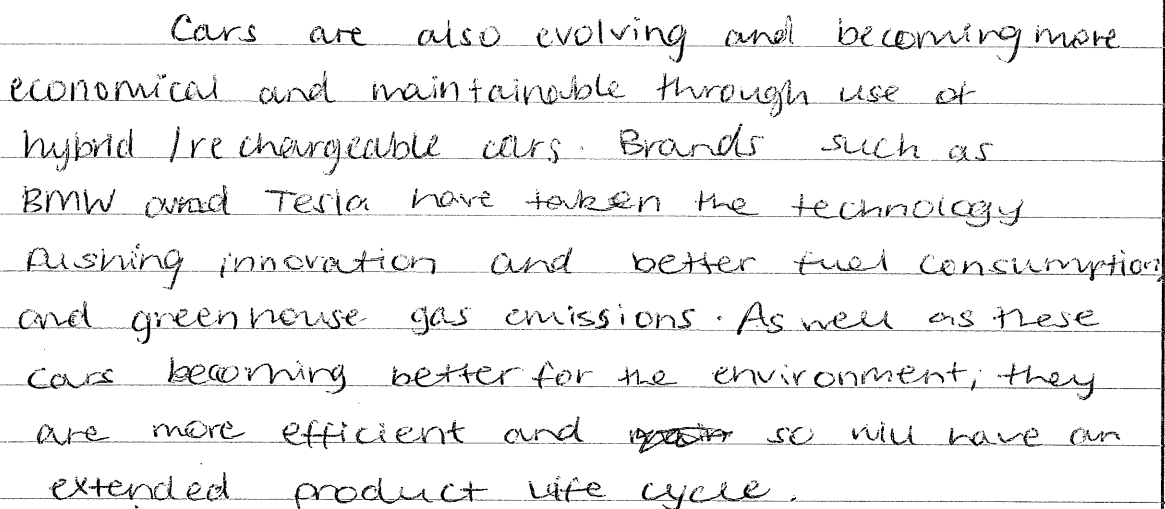 Cars are also evolving and becoming more
economical and maintainable through use of
hybrid / rechargeable cars. Brands such as
BMW and Tesla have taken the technology
pushing innovation and better fuel consumption
and greenhouse gas emissions. As well as these
cars becoming better for the environment, they
are more efficient and so will have an
extended product life cycle.